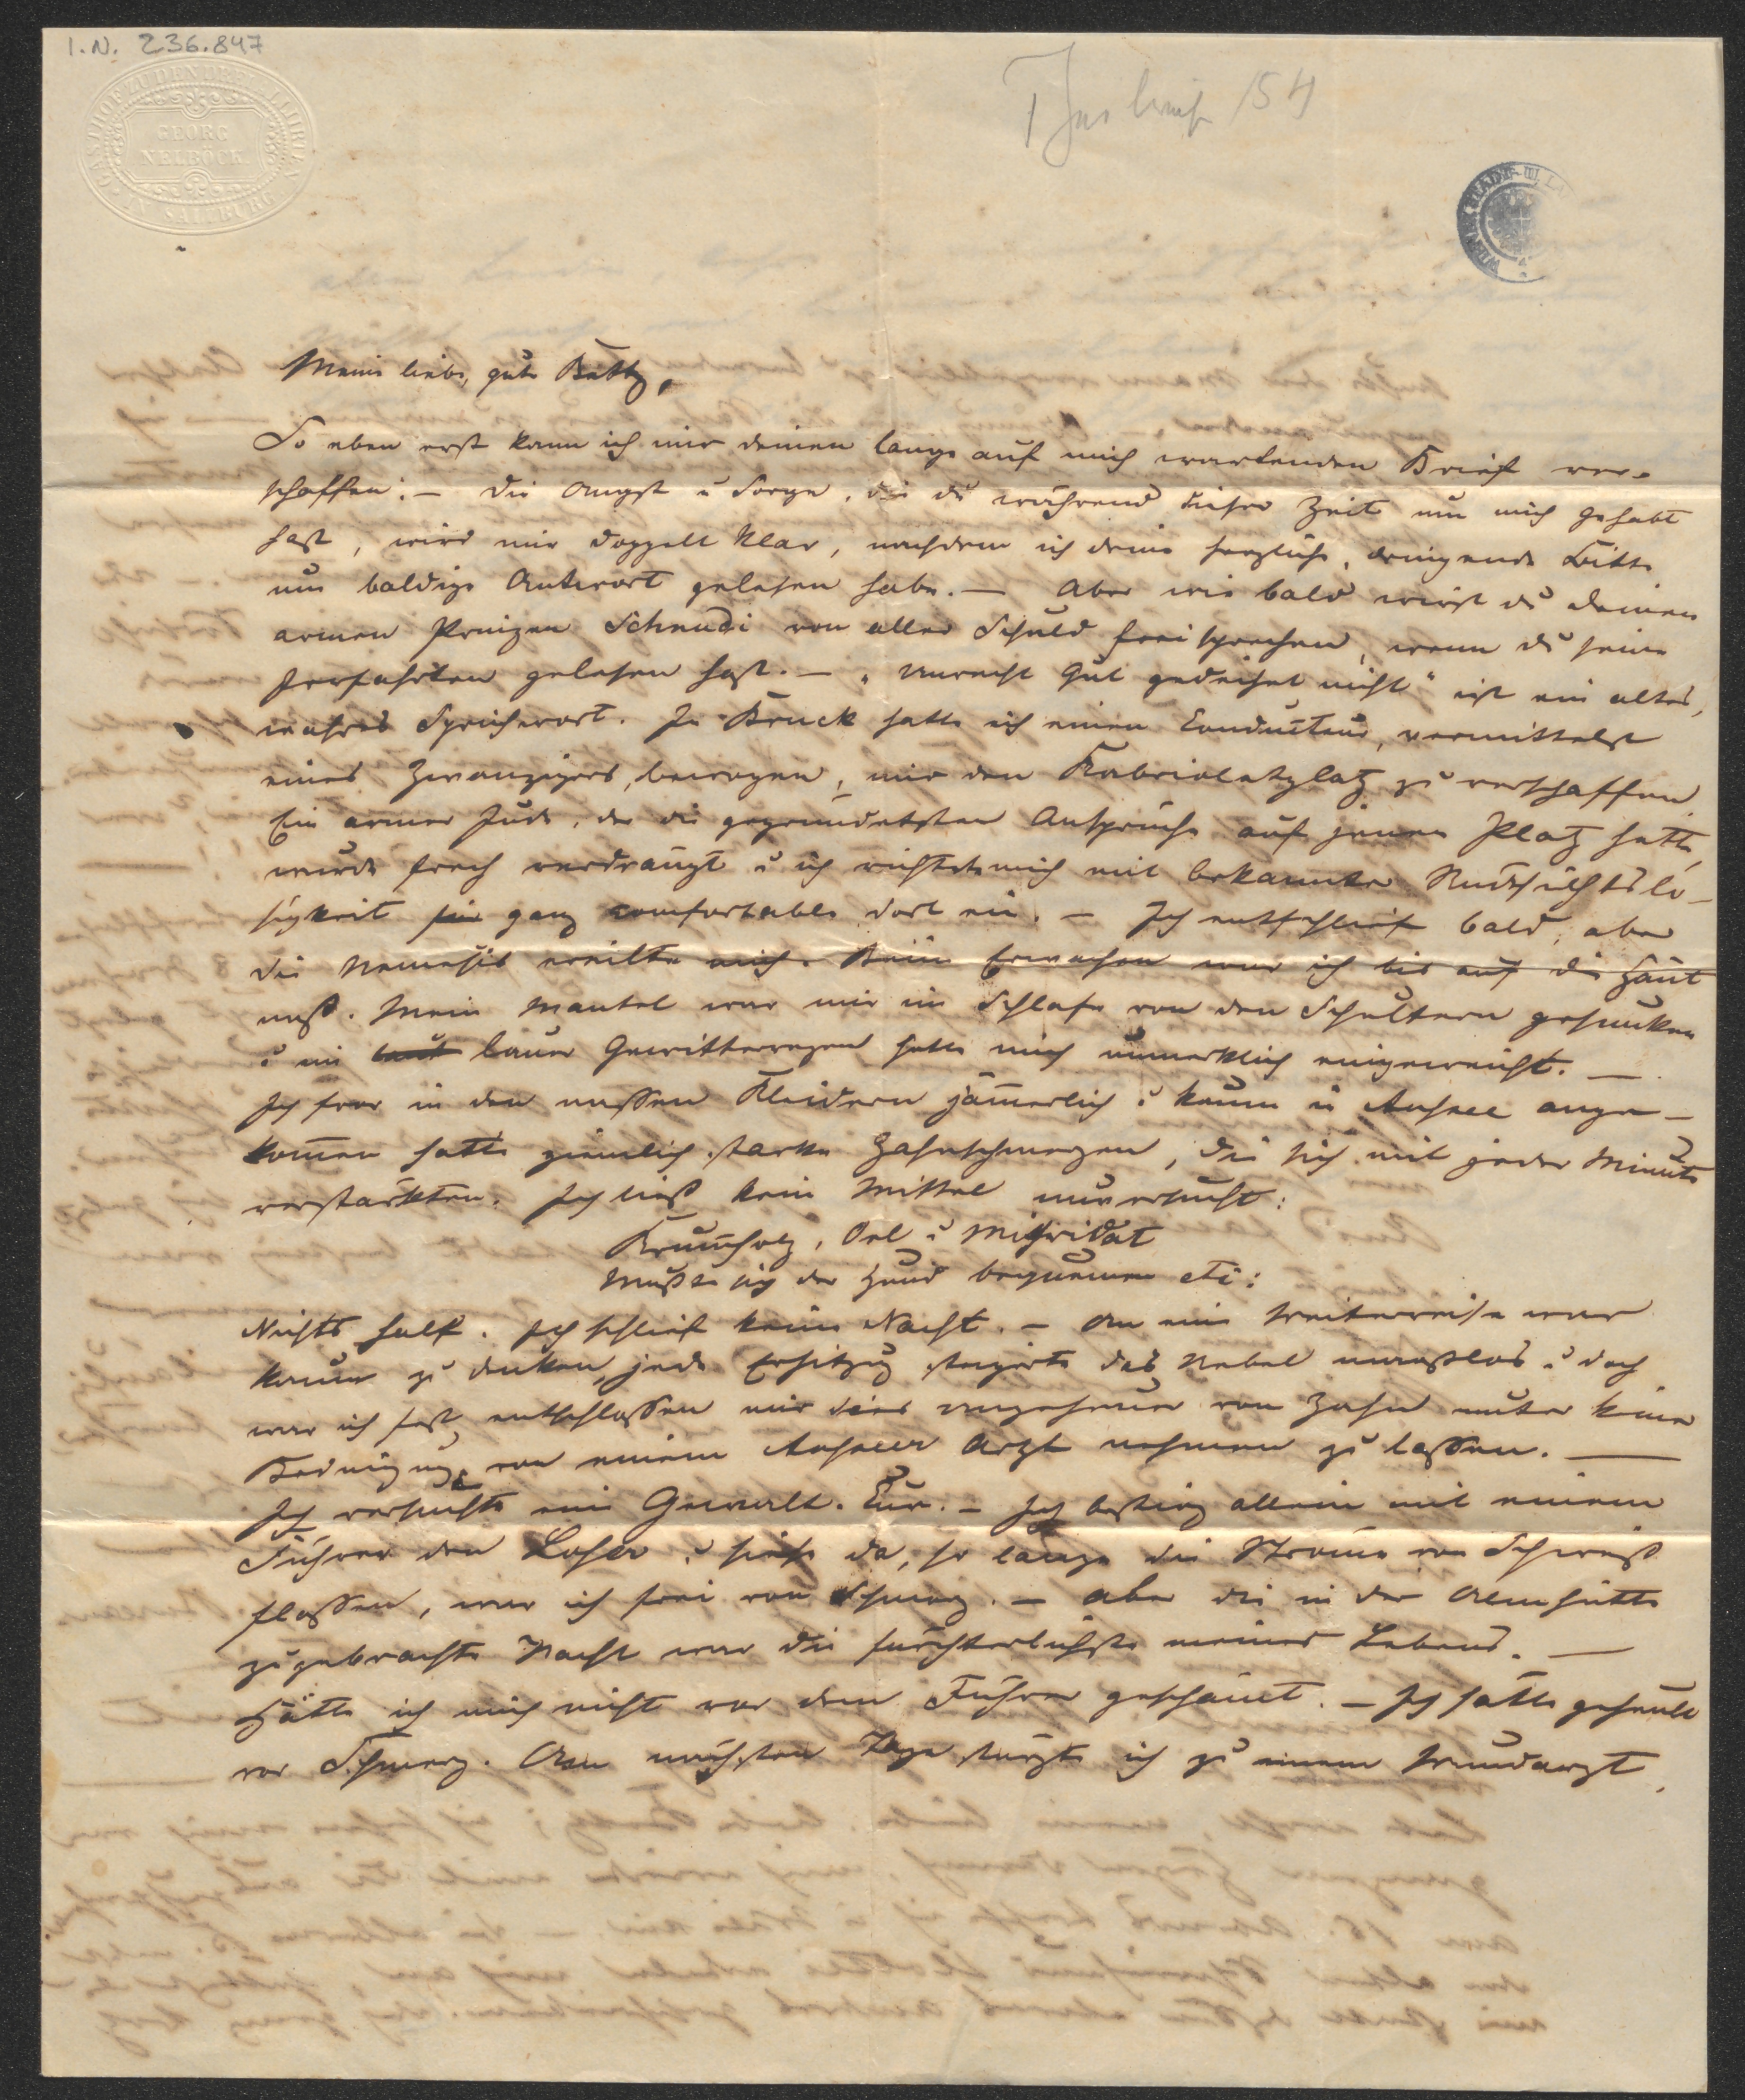 I.N. 236.847
GASTHOF ZU DEN DREI ALLIIRTEN
GEORG
NELBÖCK.
IN SALZBURG
154
WIENER STADT-
Meine liebe, gute Betty,
So eben erst kann ich mir deinen lange auf mich wartenden Brief ver-
schaffen. – Die Angst u Sorge, die du während dieser Zeit um mich gehabt
hast, wird mir doppelt klar, nachdem ich deine herzliche, dringende Bitte
um baldige Antwort gelesen habe. – Aber wie bald wirst du deinen
armen Prinzen Schnudi von aller Schuld freisprechen, wenn du seine
Irrfahrten gelesen hast. – „Unrecht Gut gedeihet nicht" ist ein altes,
wahres Sprichwort. In Bruck hatte ich einen Conducteur, vermittelst
eines Zwanzigers, bewogen, mir den Kabrioletplatz zu verschaffen
Ein armer Jude, der die gegründetsten Ansprüche auf jenen Platz hatte,
wurde frech verdrängt u ich richtete mich mit bekannter Rücksichtslo-
sigkeit ganz comfortable dort ein. – Ich entschlief bald, aber
die Nemesis ereilte mich. Beim Erwachen war ich bis auf die Haut
naß. Mein Mantel war mir im Schlafe von den Schultern gesunken
u ein lauer Gewitterregen hatte mich unmerklich eingeweicht. –
Ich fror in den nassen Kleidern jämerlich u kaum in Aussee ange-
komen hatte ziemlich starke Zahnschmerzen, die sich mit jeder Minute
verstärkten. Ich ließ kein Mittel unversucht:
Krumholz, Oel u Mithridat
Mußte sich der Hund bequemen etc:
Nichts half. Ich schlief keine Nacht. – An eine Weiterreise war
kaum zu denken, jede Erhitzug steigerte das Uebel maaßlos u doch
war ich fest entschlossen mir dies Ungeheuer von Zahn unter keiner
Bedingung von einem Ausseer Arzt nehmen zu lassen. –
Ich versuchte eine Gewalt-Cur. – Ich bestieg allein mit einem
Führer den Loser u siehe da, so lange die Ströme von Schweiß
flossen, war ich frei von Schmerz. – Aber die in der Almhütte
zugebrachte Nacht war die fürchterlichste meines Lebens. –
Hätte ich mich nicht vor dem Führer gescheuet. – Ich hätte geheult
vor Schmerz. Am nächsten Tage stürzte ich zu einem Wundarzt,